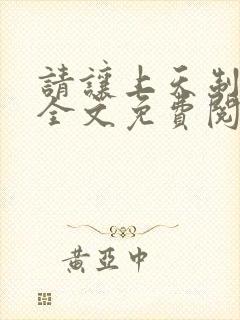 請讓上天制
全文免費閱
黃亞中